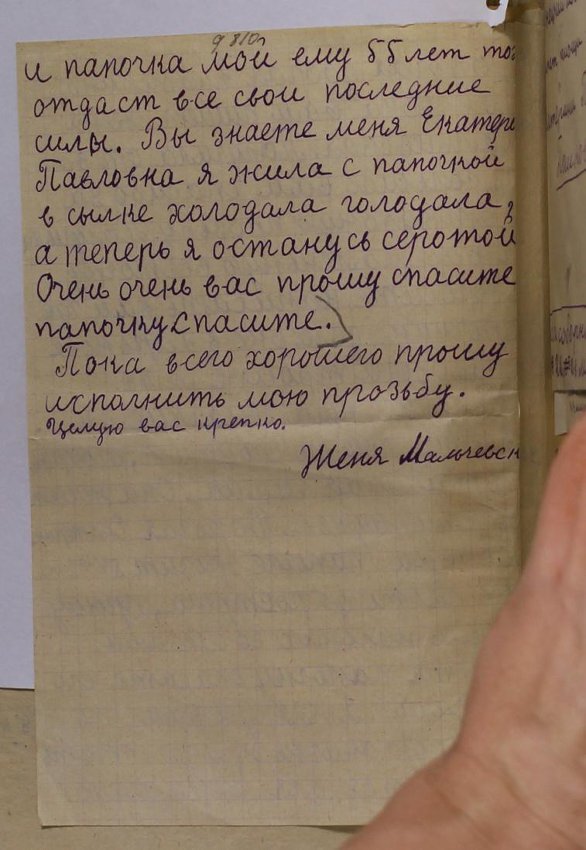 и папочка мой ему 55 лет
отдаст все свои последние
силы. Вы знаете меня Екатери
Павловна я жила с папочкой
в сылке холодала голодала,
а теперь я останусь серотой
Очень очень вас прошу спасите
папочку спасите.
Пока всего хорошего прошу
исполнить мою прозьбу.
Целую вас крепко.
Женя Мальчевск